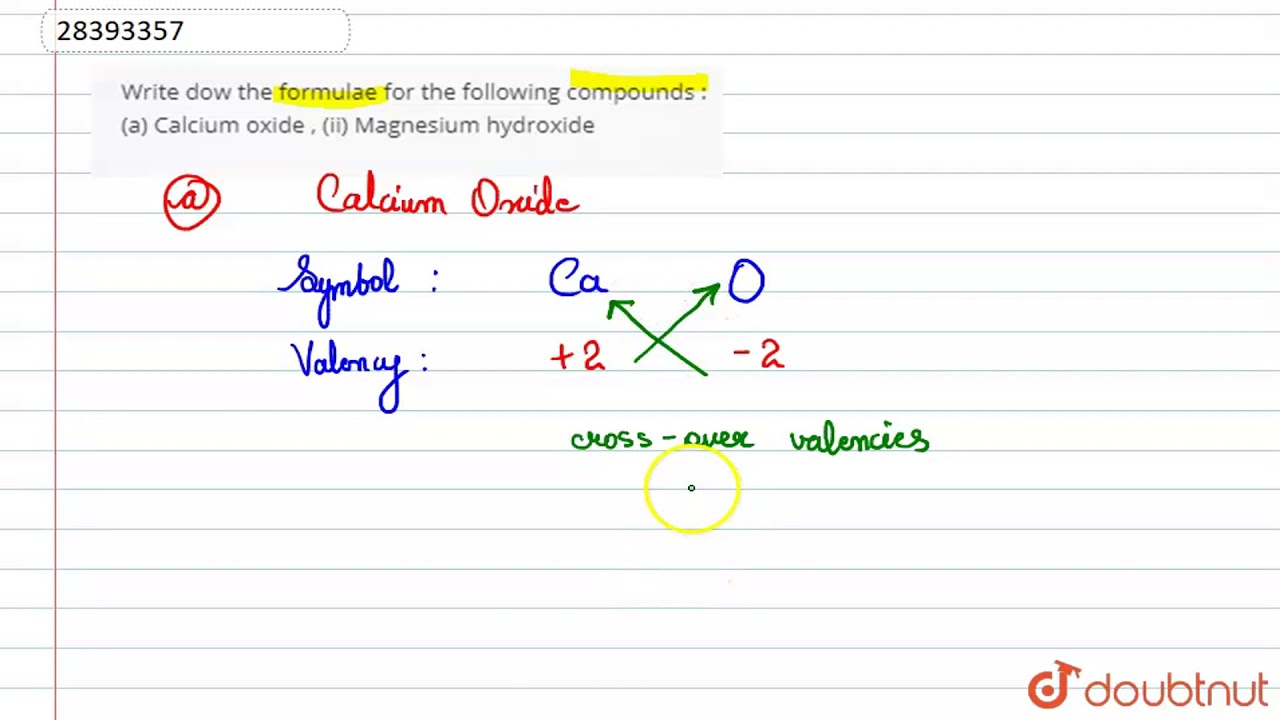 28393357
Write dow the formulae for the following compounds :
(a) Calcium oxide , (ii) Magnesium hydroxide
(a) Calcium Oxide
Symbol : Ca O
Valency : +2 -2
cross-over valencies
doubtnut